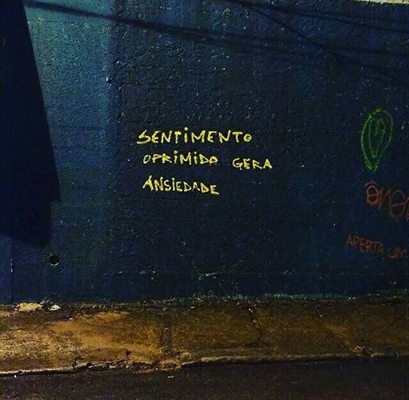 SENTIMENTO
OPRIMIDO GERA
ÁNSIEDADE
APERTA UM